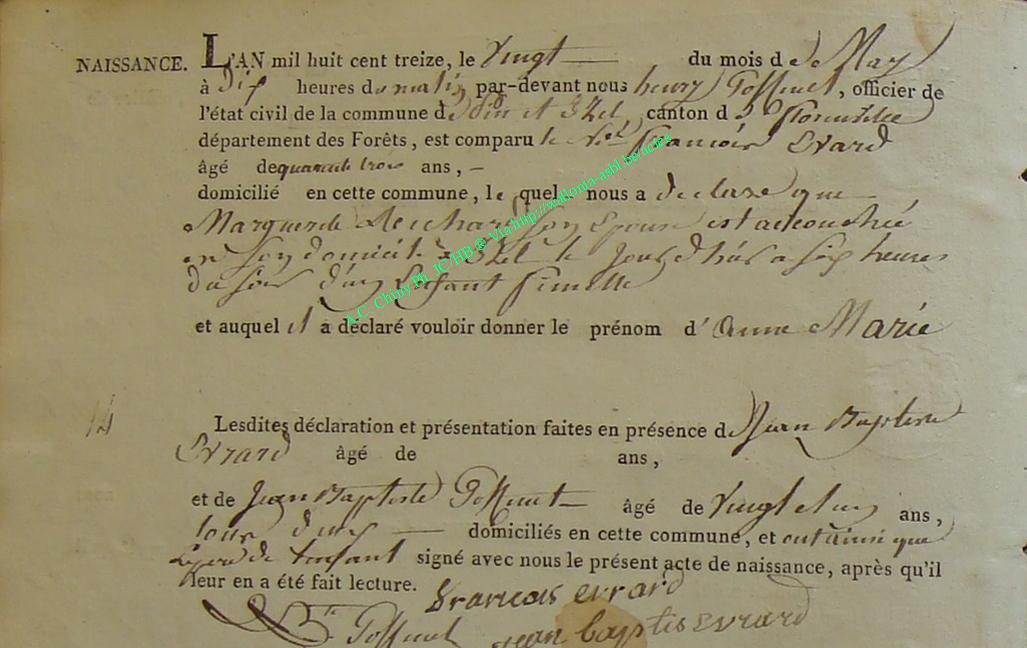 NAISSANCE. L'AN mil huit cent treize, le Vingt du mois de May
à Dix heures du matin par-devant nous henry Goffinet, officier de
l'état civil de la commune d et Izel, canton de Florenville
département des Forêts, est comparu le François Evrard
âgé de quarante trois ans,
domicilié en cette commune, lequel nous a declaré que
Marguerite son Epouse est accouchée
en son domicile à Izel le Jour d'hier a six heures
du soir d'un Enfant femelle
et auquel il a déclaré vouloir donner le prénom d'Anne Marie
14
Lesdites déclaration et présentation faites en présence de Jean Baptiste
Evrard âgé de ans,
et de Jean Baptiste Goffinet âgé de Vingt et un ans,
tous deux domiciliés en cette commune, et ont ainsi que
Le pere de l'enfant signé avec nous le présent acte de naissance, après qu'il
leur en a été fait lecture. francois evrard
Goffinet jean baptis evrard
A.C. Chiny Ph. JC HB ® Via http://wallonia-asbl.be/acien